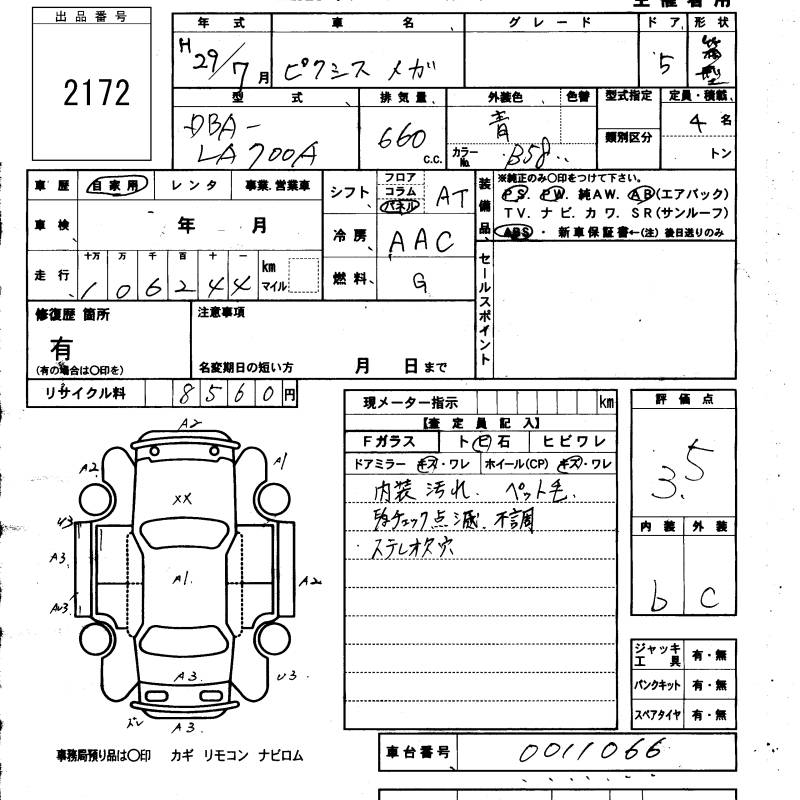 出品番号
2172
年式 車名 グレード ドア 形状
H29/7月 ピクシス メガ 5
型式 排気量 外装色 色替 型式指定 定員・積載
DBA-LA700A 660 c.c. 青 カラーNo. B58 類別区分 4名
トン
車歴 自家用 レンタ 事業.営業車
車検 年 月
走行 十万 万 千 百 十 一
106244 km マイル
シフト フロア コラム パネル AT
冷房 AAC
燃料 G
装備品 ※純正のみ〇印をつけて下さい。
PS. PW. 純AW. AB(エアバック)
TV. ナビ. カワ. SR(サンルーフ)
ABS・新車保証書←(注)後日送りのみ
セールスポイント
修復歴 箇所
有
(有の場合は〇印を)
注意事項
名変期日の短い方 月 日まで
リサイクル料 8560円
現メーター指示 km
【査定員記入】
Fガラス ト ビ 石 ヒビワレ
ドアミラー キズ・ワレ ホイール(CP) キズ・ワレ
内装汚れ. ペット毛.
点滅.不調
ステレオ穴
評価点
3.5
内装 外装
b C
A2
A2 A1
XX
U3
A3
A1. A2
A3. U3
ズレ
A3.
ジャッキ工具 有・無
パンクキット 有・無
スペアタイヤ 有・無
車台番号 0011066
事務局預り品は〇印 カギ リモコン ナビロム